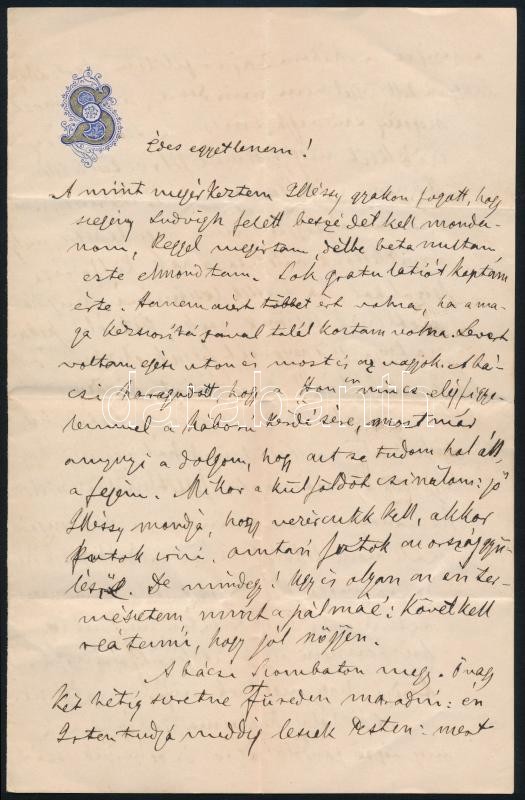 S
Édes egyetlenem!
A mint megérkeztem Illéssy nyakon fogott, hogy
szegény Ludvigh felett beszédet kell monda-
nom, Reggel megirtam, délbe betanultam
este elmondtam. Sok gratulatiót kaptam
érte. Hanem azért többet ért volna, ha a ma-
ga kézszoritásával talál koztam volna. Levert
voltam egész uton és most is az vagyok. A bá-
csi haragudott hogy a Hon nincs elég figye-
lemmel a háboru kérdésére, most már
annyi a dolgom, hogy azt se tudom hol áll
a fejem. Mikor a külföldöt csinálom: jő
Illéssy mondja, hogy vezércikk kell, akkor
futok irni, azután futok az országgyü-
lésre. De mindegy! Ugy is olyan az én ter-
mészetem mint a pálmáé: követ kell
reá tenni, hogy jól nőjjen.
A bácsi Szombaton megy. Ő vagy
két hétig szeretne Füreden maradni: én
Isten tudja meddig leszek Pesten: mert
darabanth